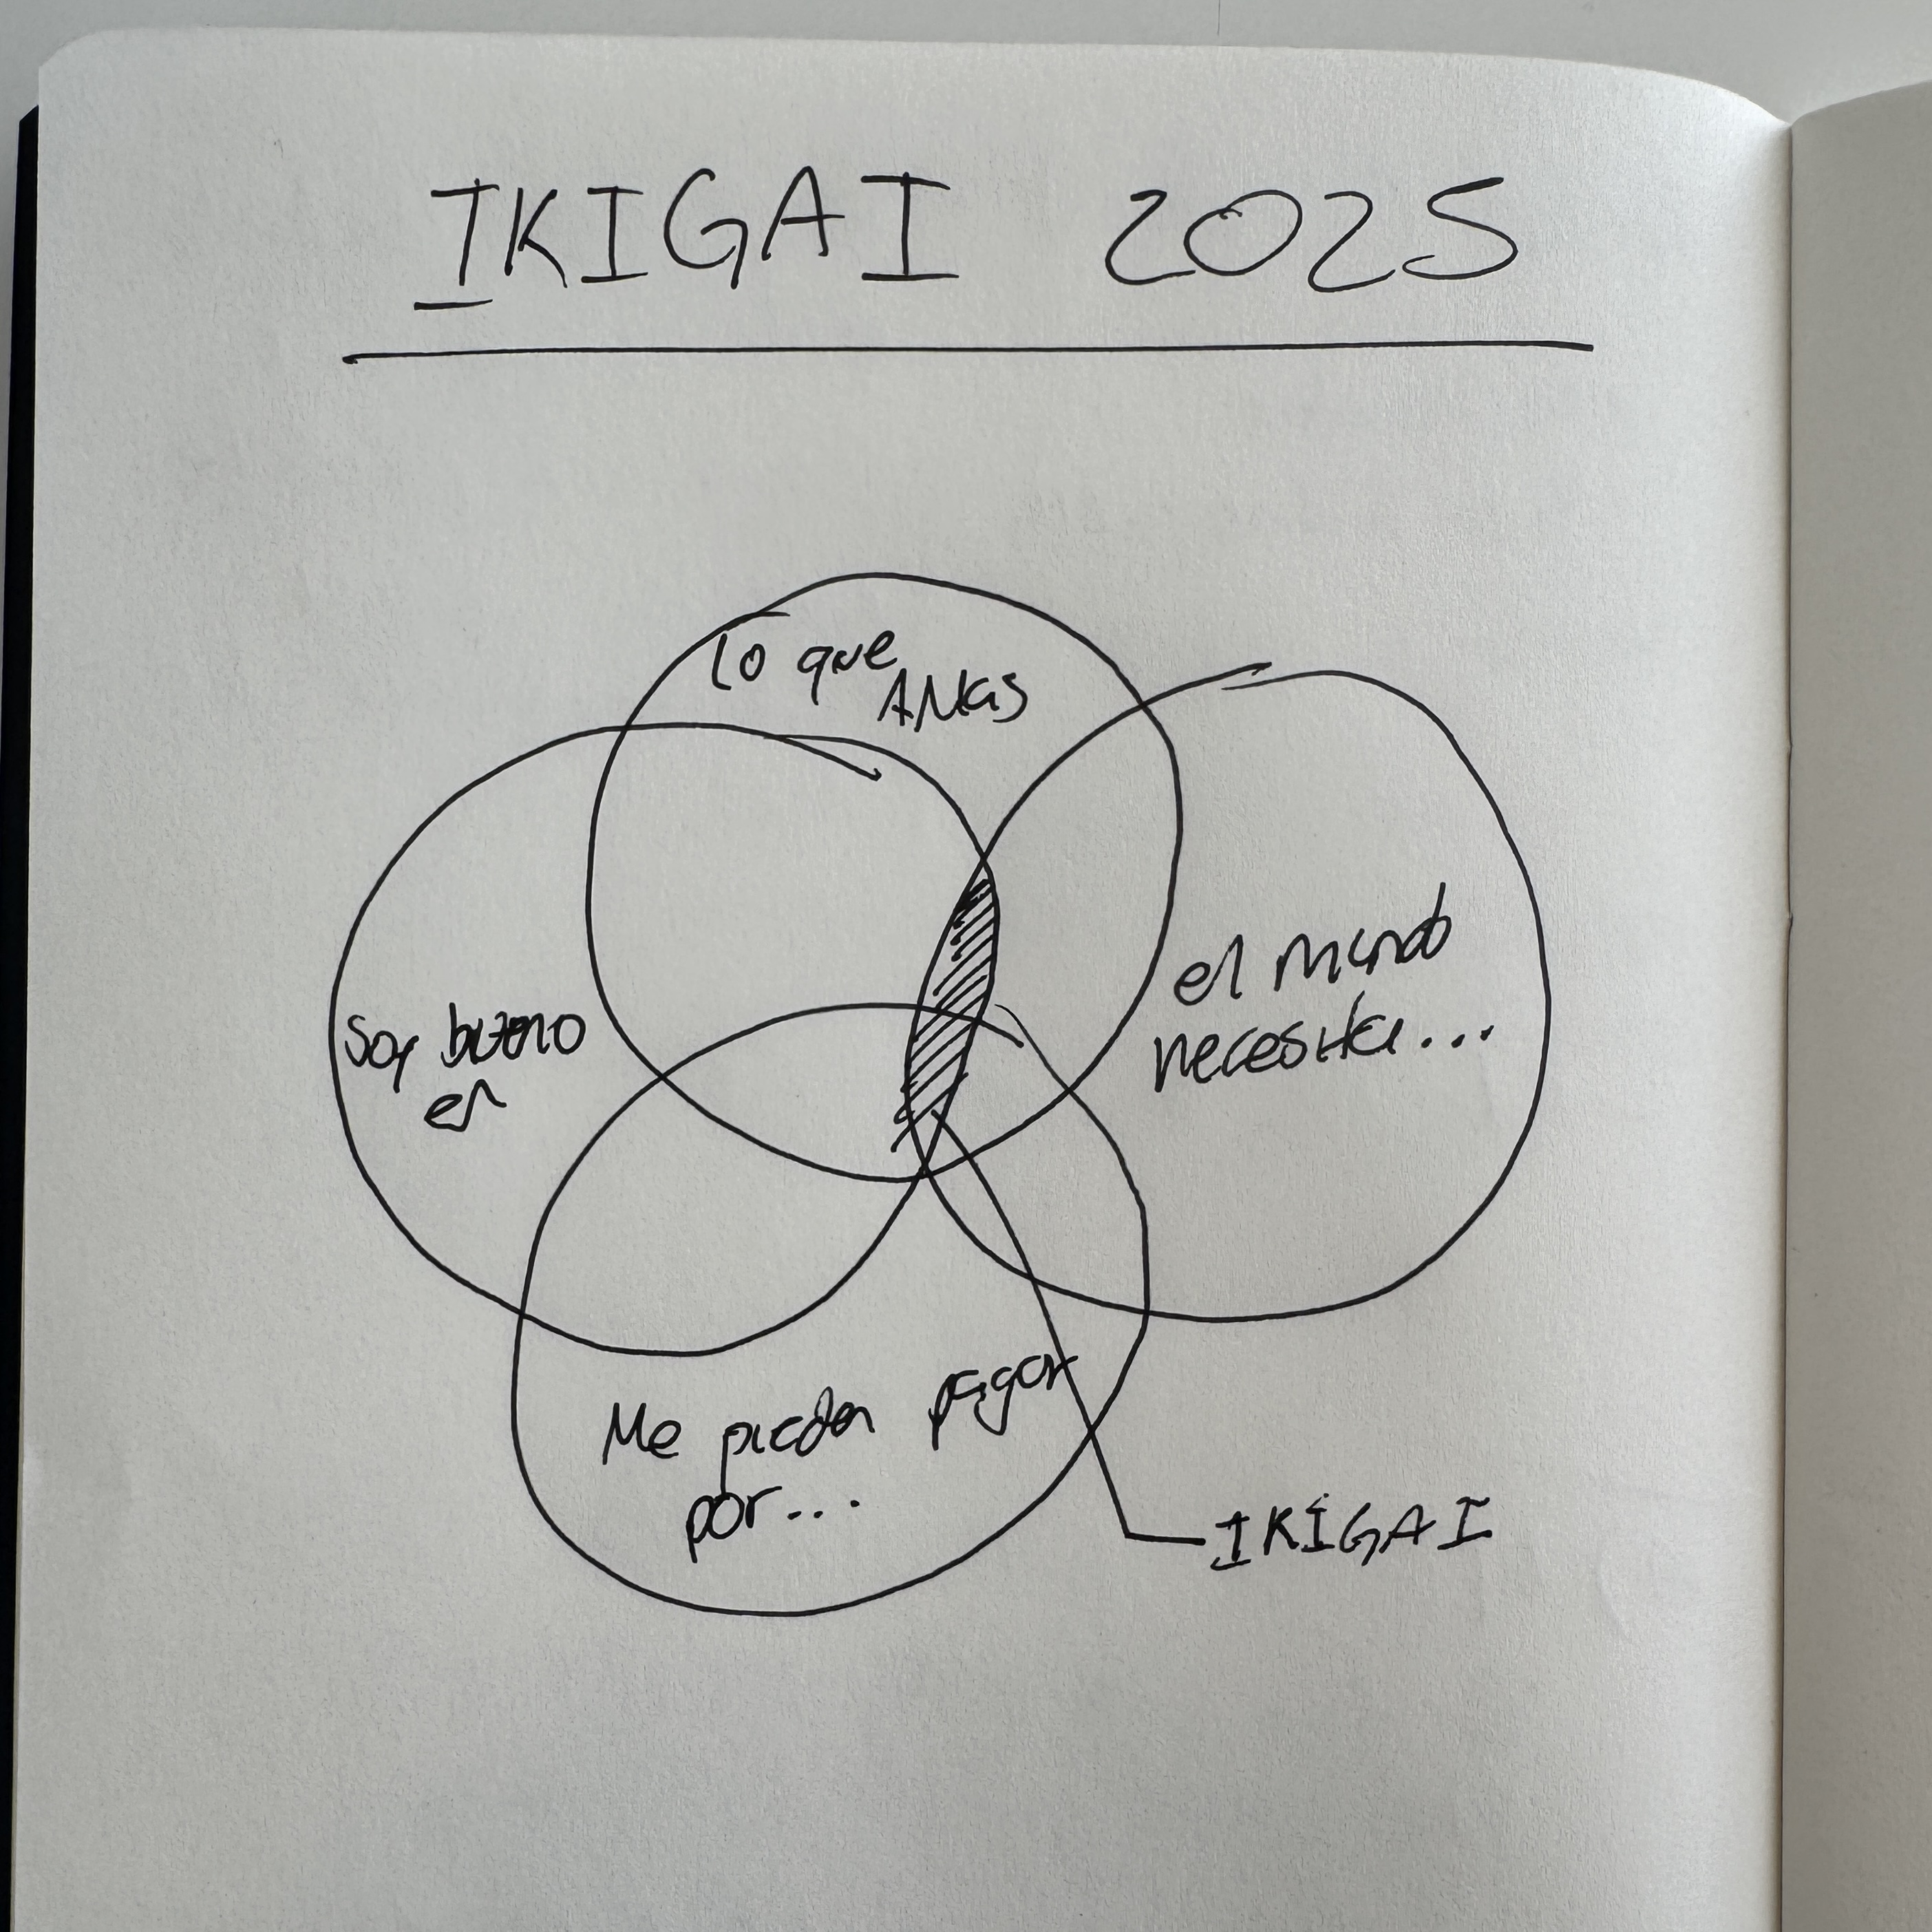 IKIGAI 2025
Lo que
AMAS
el mundo
necesita...
Soy bueno
en
Me pueden pagar
por...
IKIGAI